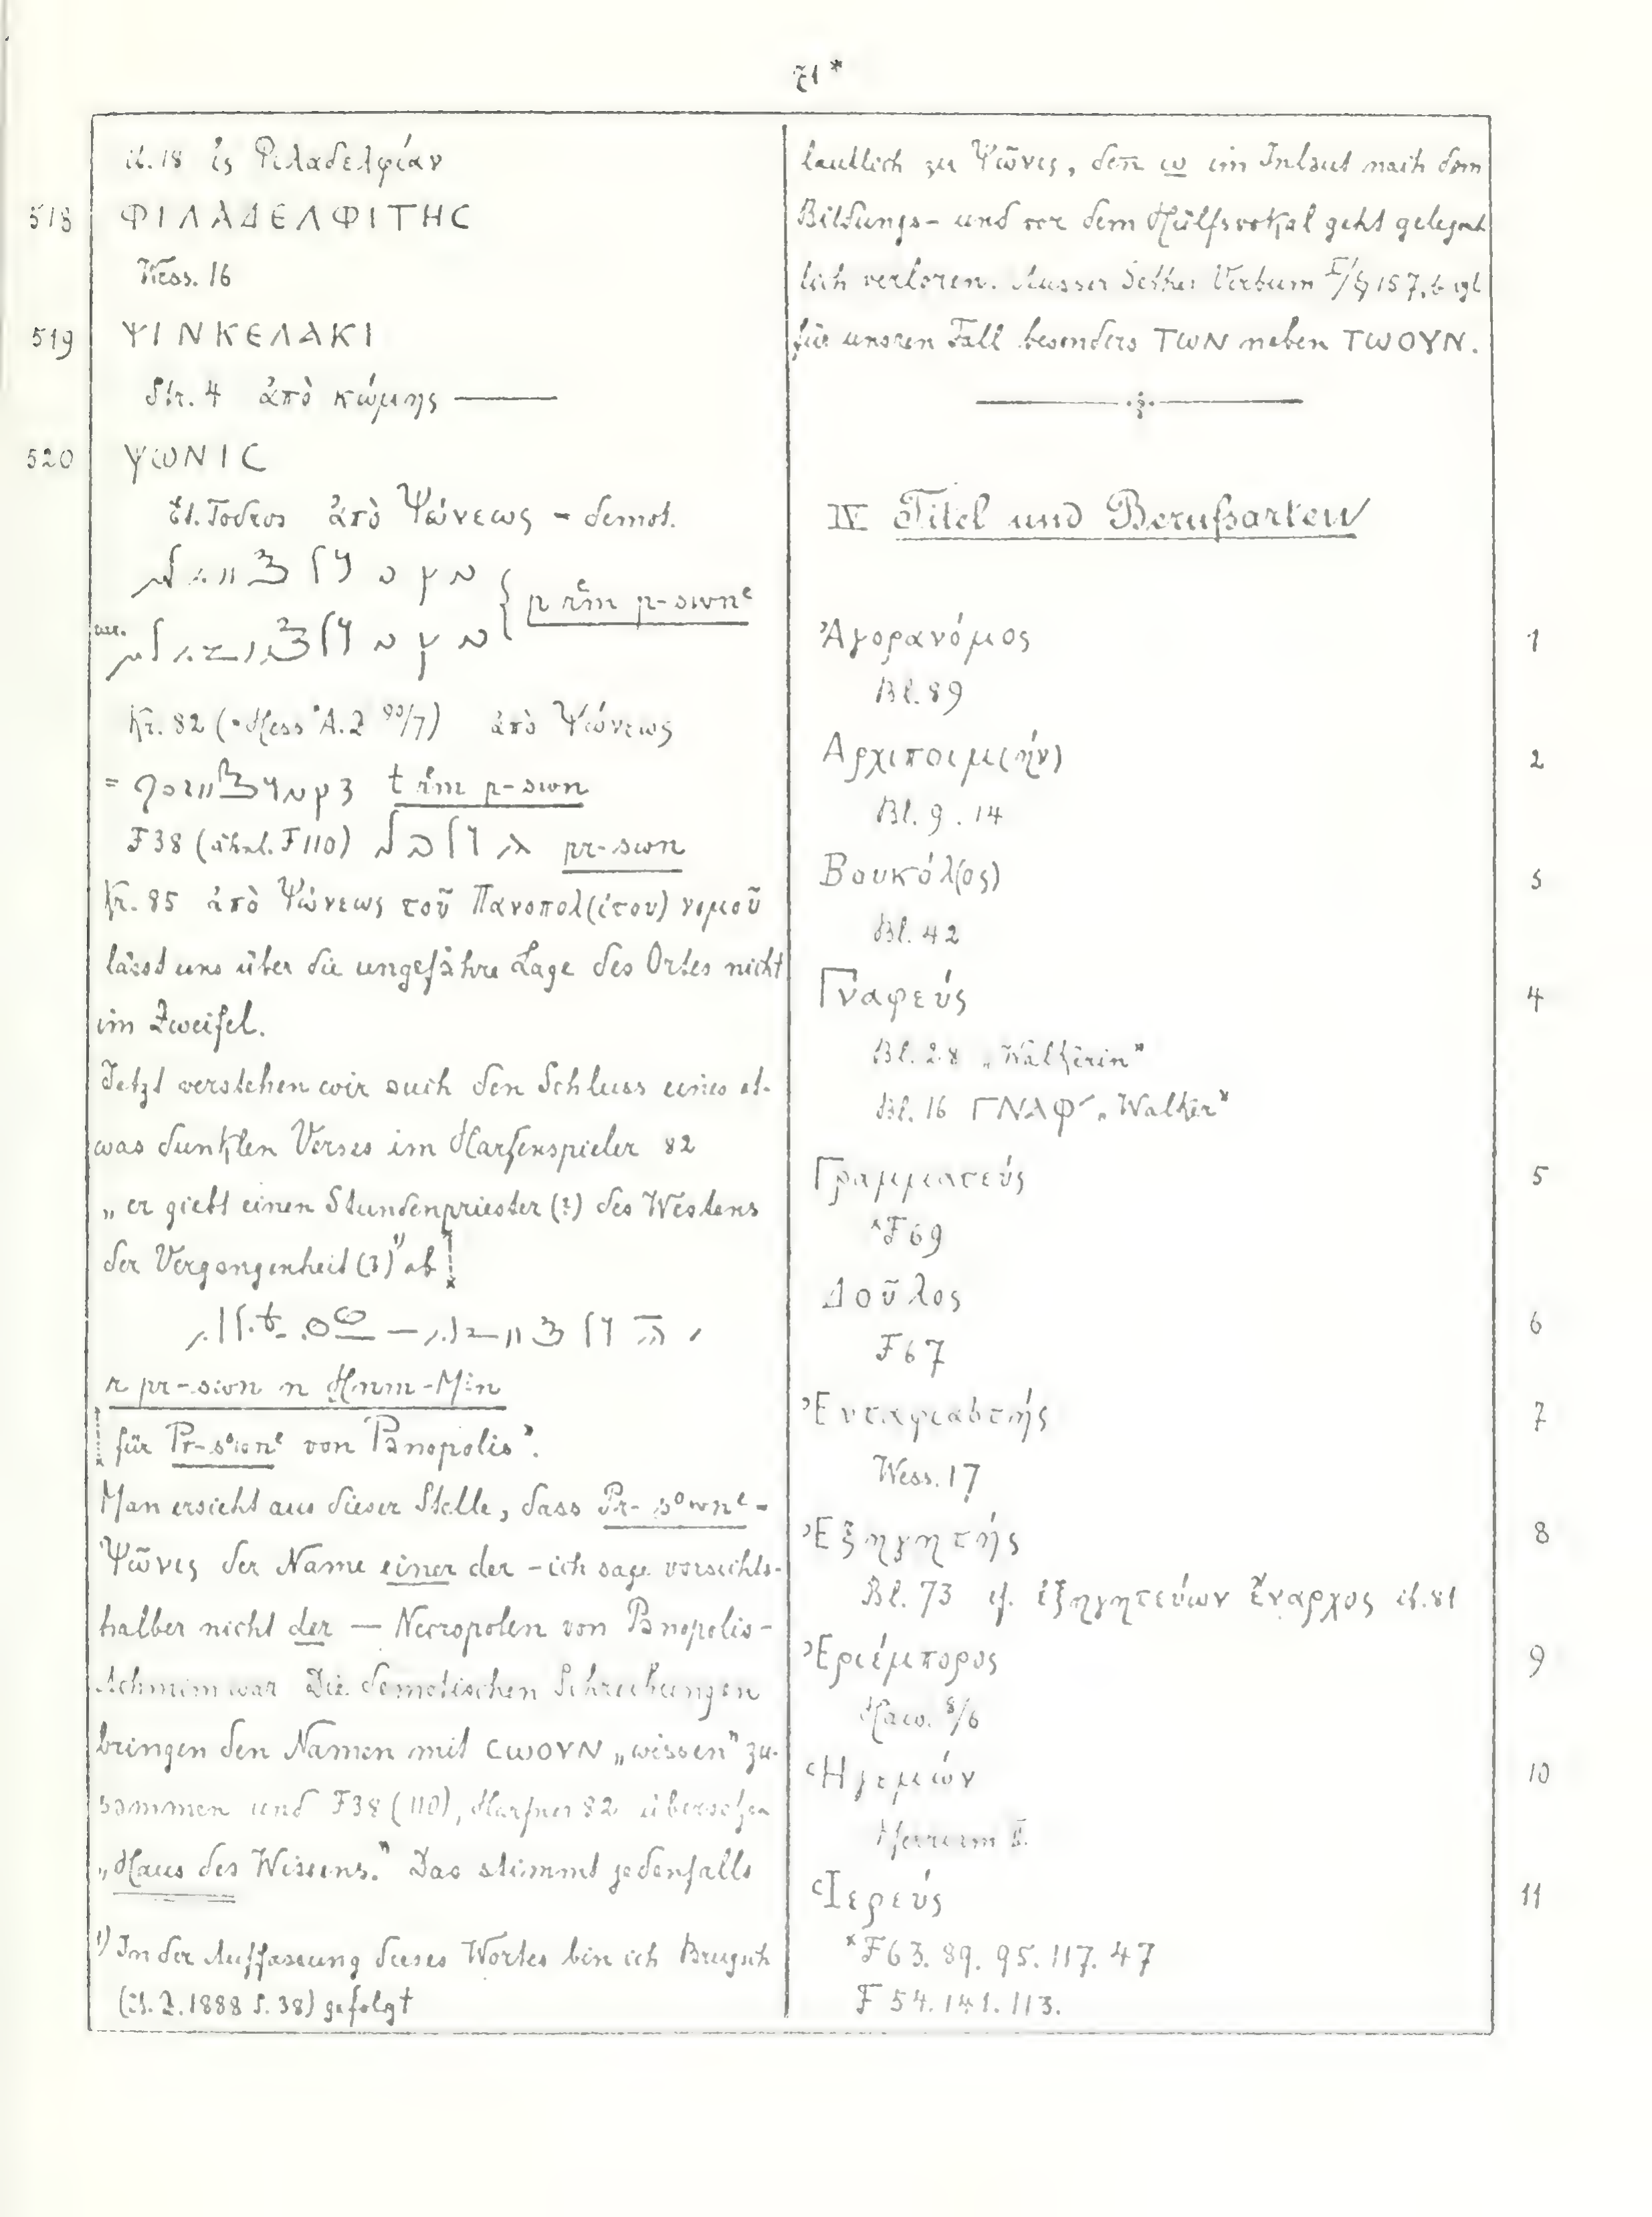 71*
ib. 18 ἰς Φιλαδελφίαν
518 ΦΙΛΑΔΕΛΦΙΤΗС
Wess. 16
519 ΨΙΝΚΕΛΑΚΙ
Str. 4 ἀπὸ κώμης —
520 ΨωΝΙС
ἀπὸ Ψώνεως = demot.
p rm̄ p-swnᵉ
var.
Kr. 82 (= Hess Ä.Z 90/7) ἀπὸ Ψώνεως
= t rm̄ p-swn
F 38 (ähnl. F 110) pr-swn
Kr. 85 ἀπὸ Ψώνεως τοῦ Πανοπολ(ίτου) νομοῦ
lässt uns über die ungefähre Lage des Ortes nicht
im Zweifel.
Jetzt verstehen wir auch den Schluss eines et-
was dunklen Verses im Harfenspieler 82
„er giebt einen Stundenpriester (?) des Westens
der Vergangenheit (?)¹⁾ ab
r pr-swn n Hnm-Min
für Pr-sºwnᵉ von Panopolis".
Man ersieht aus dieser Stelle, dass Pr-sºwnᵉ =
Ψῶνις der Name einer der – ich sage vorsichts-
halber nicht der — Necropolen von Panopolis-
Achmim war. Die demotischen Schreibungen
bringen den Namen mit СωΟΥΝ „wissen" zu-
sammen und F 38 (110), Harfner 82 übersetzen
„Haus des Wissens." Das stimmt jedenfalls
¹⁾ In der Auffassung dieses Wortes bin ich Brugsch
(Ä. Z. 1888 S. 38) gefolgt
lautlich zu Ψῶνις, den̄ ω im Inlaut nach dem
Bildungs- und vor dem Hülfsvokal geht gelegent
lich verloren. Ausser Sethe: Verbum I/§ 157,6 vgl
für unsren Fall besonders ΤωΝ neben ΤωΟΥΝ.
IV Titel und Berufsarten
Ἀγορανόμος 1
Bl. 89
Αρχιποιμ(ήν) 2
Bl. 9. 14
Βουκόλ(ος) 3
Bl. 42
Γναφεύς 4
Bl. 28 „Walkerin"
Bl. 16 ΓΝΑΦ´ „Walker"
Γραμματεύς 5
*F 69
Δοῦλος 6
F 67
Ἐνταφιαστής 7
Wess. 17
Ἐξηγητής 8
Bl. 73 cf. ἐξηγητεύων ἔναρχος ib. 81
Ἐριέμπορος 9
Haw. 8/6
Ἡγεμών 10
II.
Ἱερεύς 11
*F 63. 89. 95. 117. 47
F 54. 141. 113.